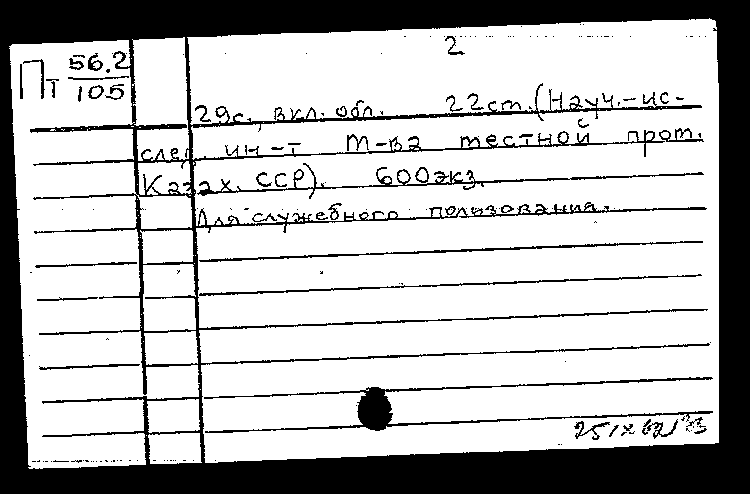 2
Пт 56.2
105
29с., вкл. обл. 22cm. (Науч.-ис-
след. ин-т М-ва местной пром.
Казах. ССР). 600экз.
Для служебного пользования.